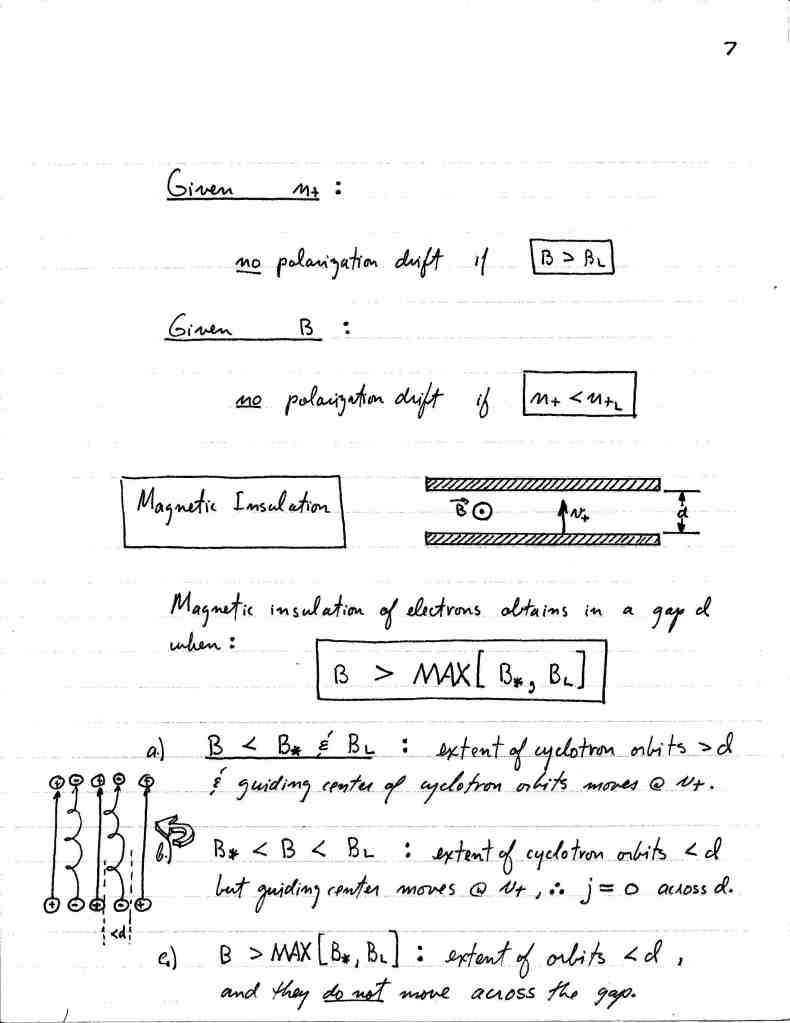 7
Given n₊ :
no polarization drift if B > B_L
Given B :
no polarization drift if n₊ < n₊_L
Magnetic Insulation
B⃗ ⊙ v₊ d
Magnetic insulation of electrons obtains in a gap d
when :
B > MAX[ B*, B_L ]
a.) B < B* & B_L : extent of cyclotron orbits > d
& guiding center of cyclotron orbits moves @ v₊.
b.) B* < B < B_L : extent of cyclotron orbits < d
but guiding center moves @ v₊, ∴ j = 0 across d.
+ - + - +
+ - + - +
<d
c.) B > MAX[B*, B_L] : extent of orbits < d ,
and they do not move across the gap.